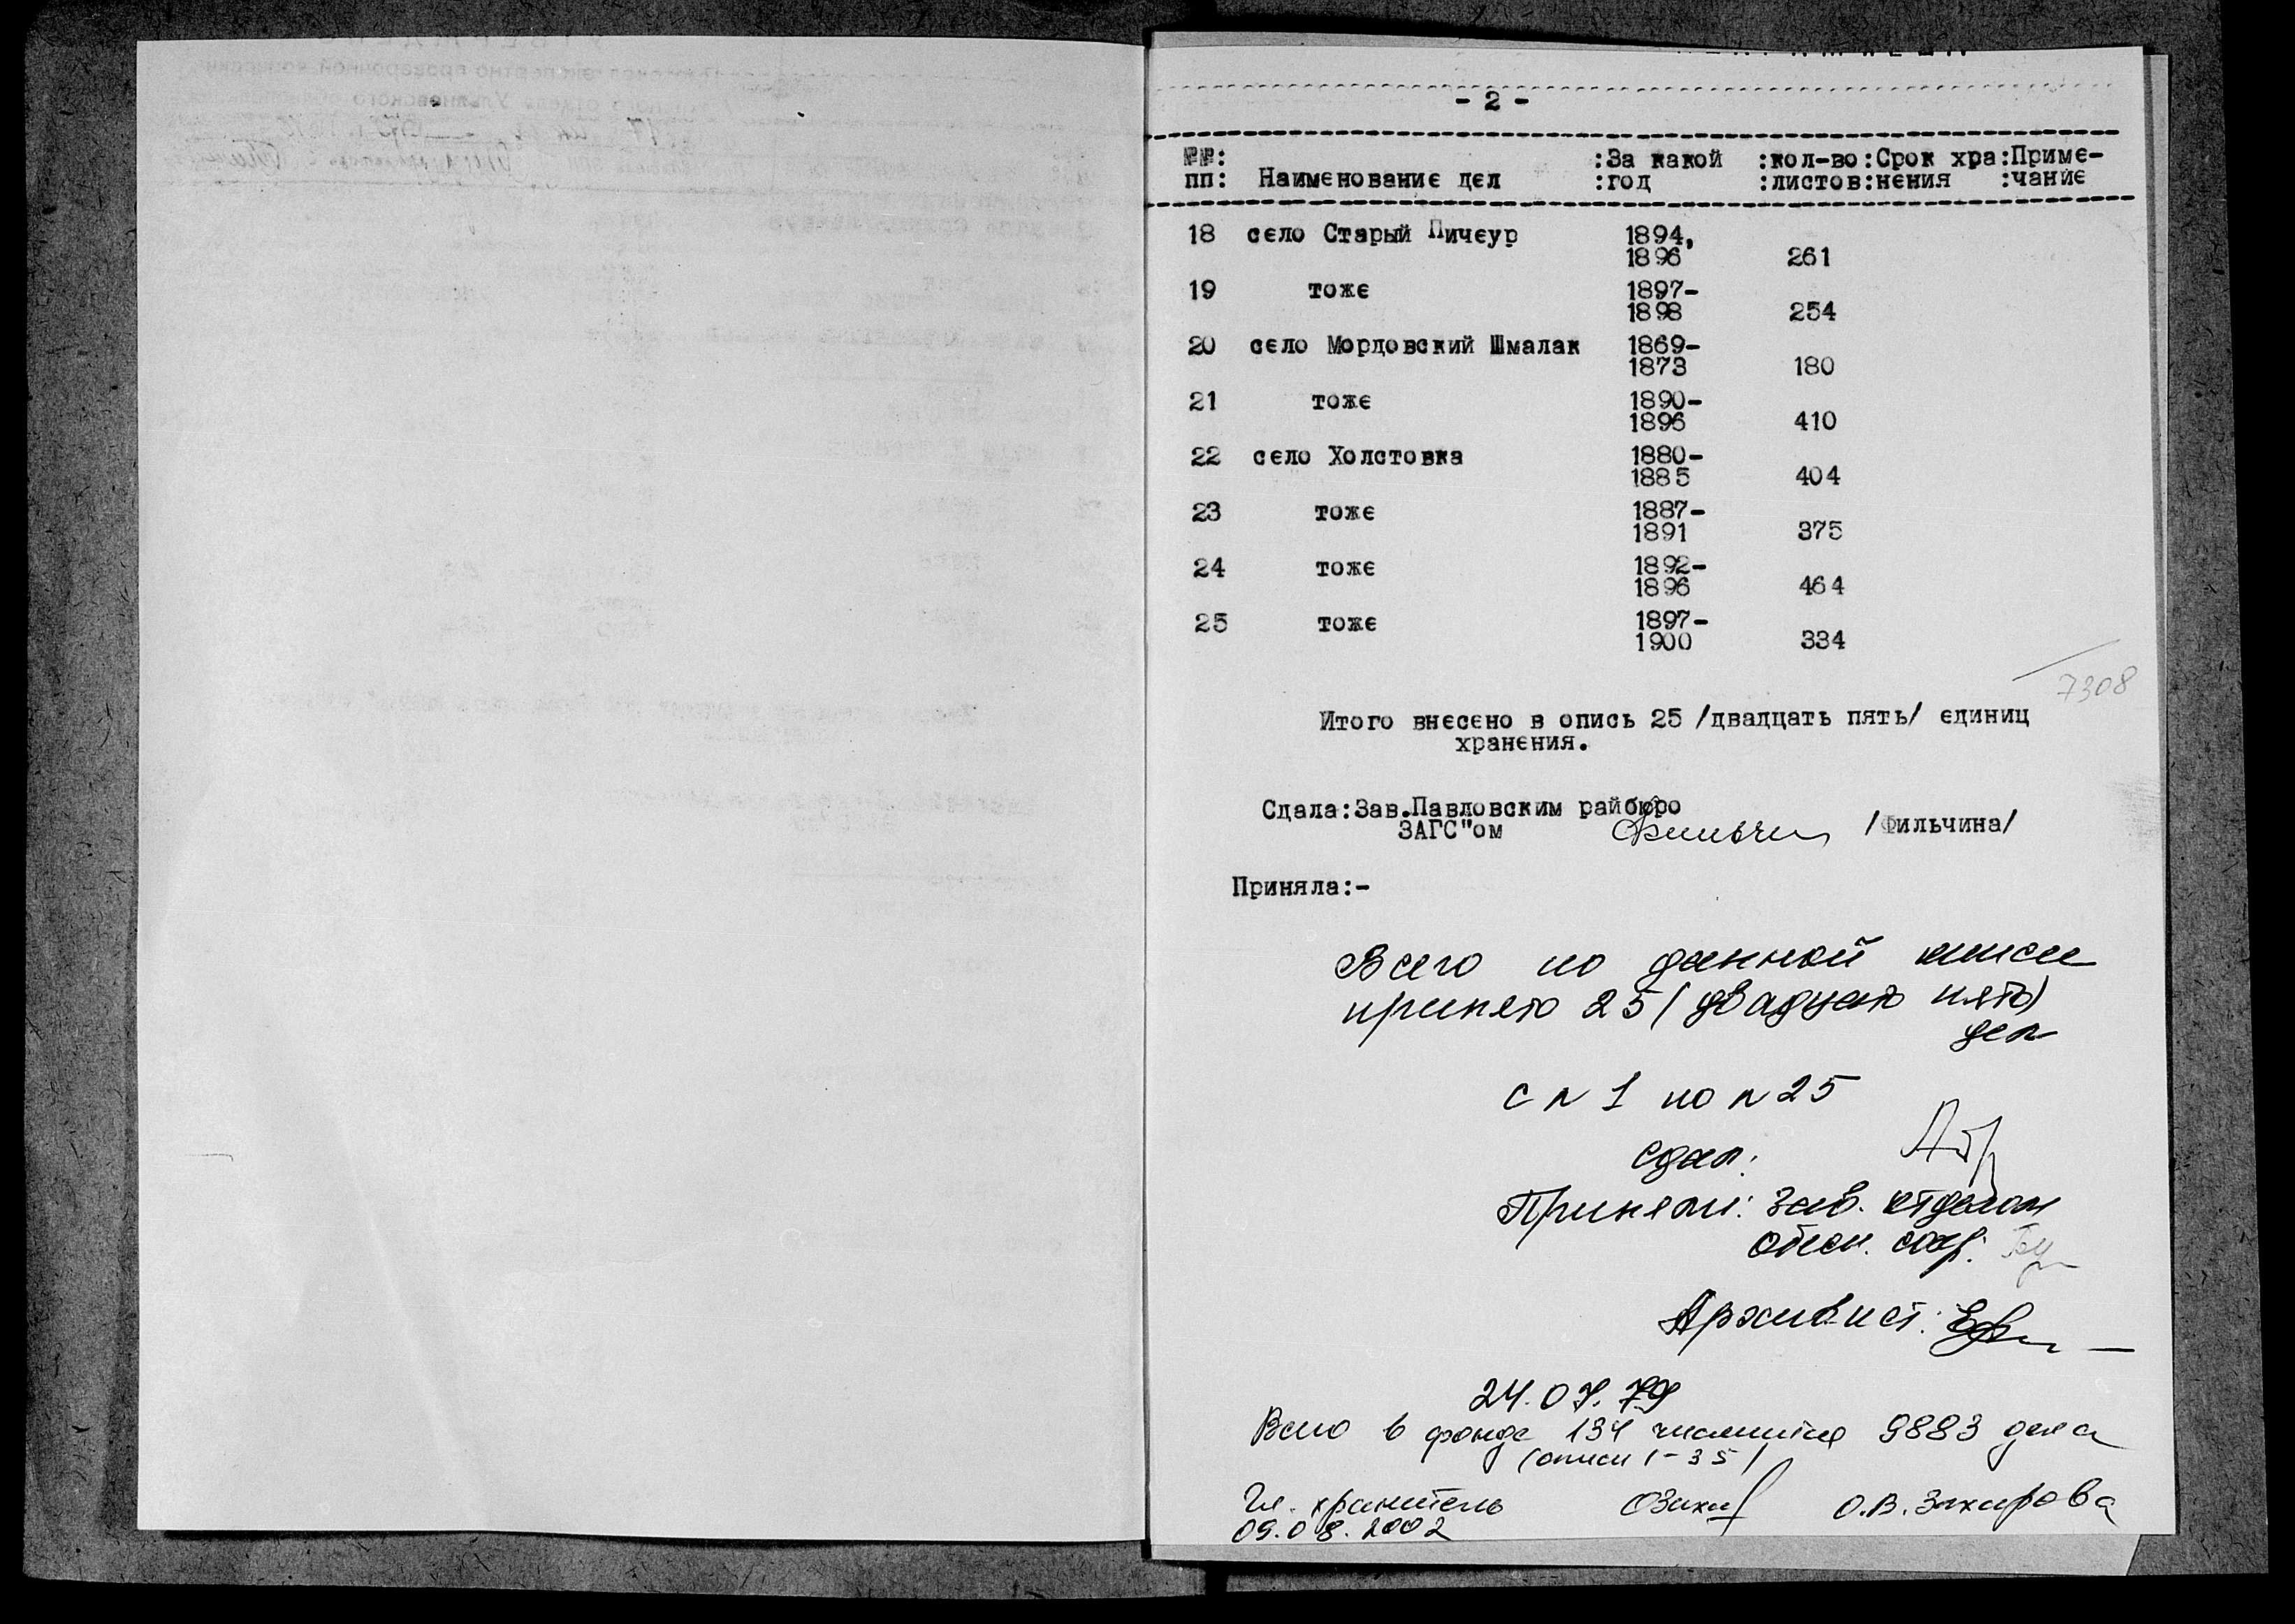 - 2 -
№№: :За какой :кол-во:Срок хра:Приме-
пп: Наименование дел :год :листов:нения :чание
18 село Старый Пичеур 1894,
1896 261
19 тоже 1897-
1898 254
20 село Мордовский Шмалак 1869-
1873 180
21 тоже 1890-
1896 410
22 село Холстовка 1880-
1885 404
23 тоже 1887-
1891 375
24 тоже 1892-
1896 464
25 тоже 1897-
1900 334
7308
Итого внесено в опись 25 /двадцать пять/ единиц
хранения.
Сдала:Зав.Павловским райбюро
ЗАГС"ом /Фильчина/
Приняла:-
Всего по данной описи
принято 25 (двадцать пять)
дел
с н 1 по н 25
Сдал:
Приняли: Зав. отделом
обесп. сохр.
Архивист:
24.07.79
Всего в фонде 134 числится 9883 дела
(описи 1-35)
Гл. хранитель ОЗахар О.В. Захарова
09.08.2002